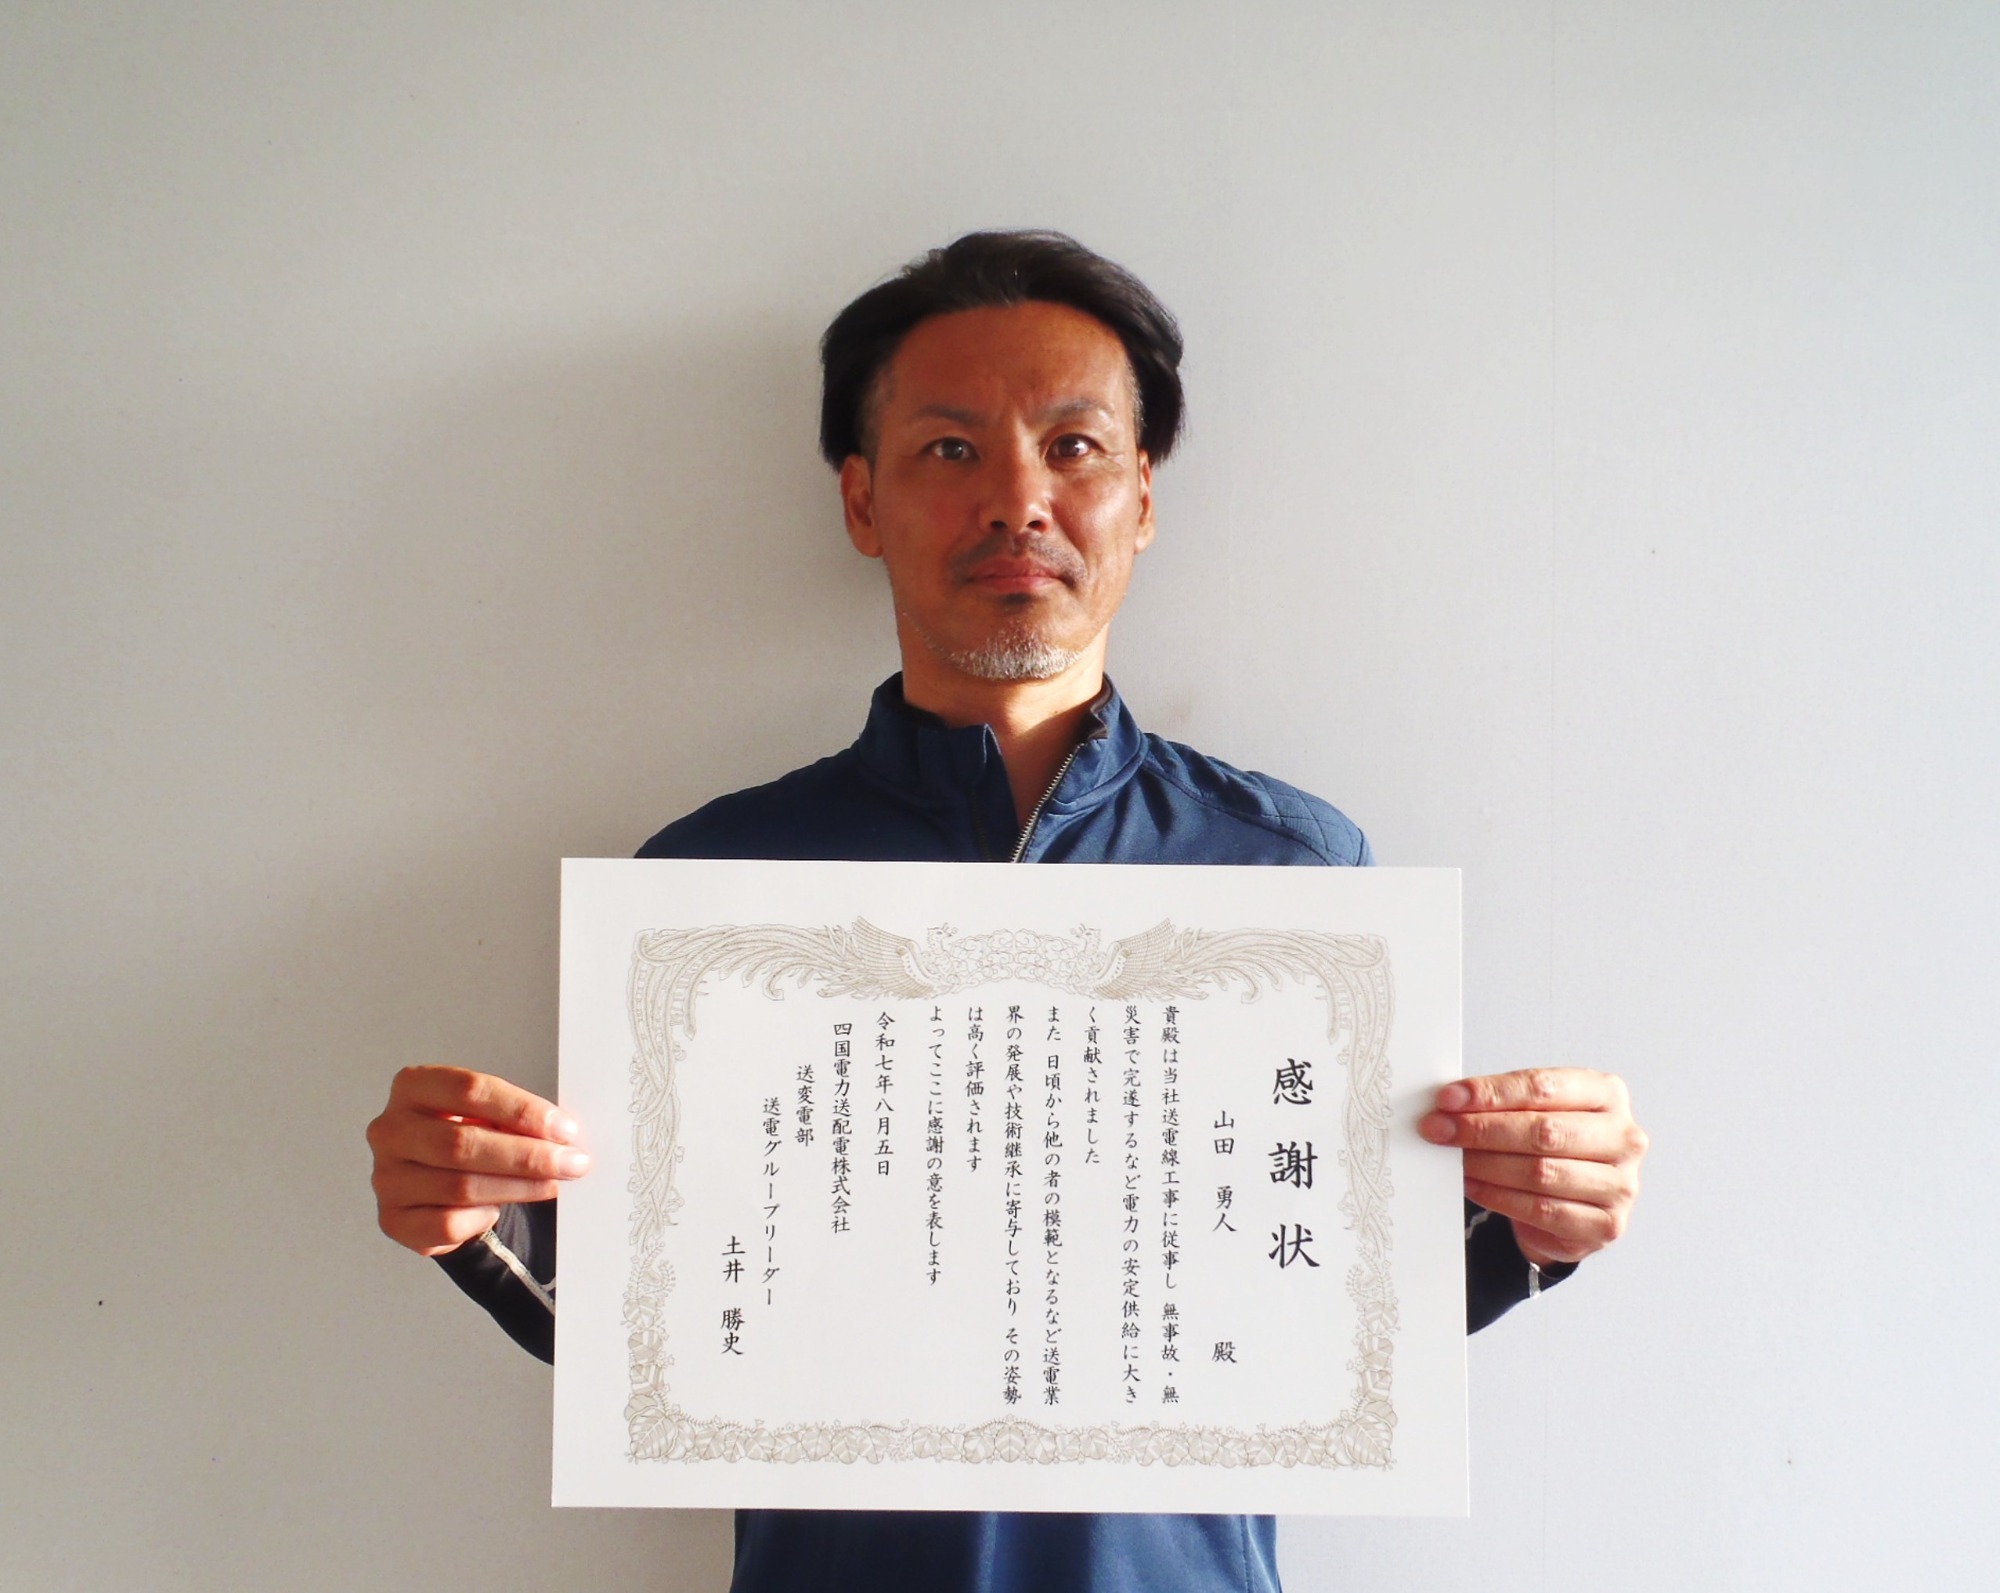 感謝状
山田 勇人 殿
貴殿は当社送電線工事に従事し 無事故・無
災害で完遂するなど電力の安定供給に大き
く貢献されました
また 日頃から他の者の模範となるなど送電業
界の発展や技術継承に寄与しており その姿勢
は高く評価されます
よってここに感謝の意を表します
令和七年八月五日
四国電力送配電株式会社
送変電部
送電グループリーダー
土井 勝史